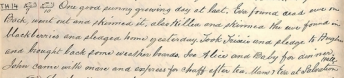 TH 14 One good sunny growing day at last. Ive found dead ewe on
Back went out and skinned it, also killed and skinned the ewe found in
blackberries and pledged home yesterday. Took Trixie and pledge to
and brought back some weather boards. Ivo Alice and Baby for dinner
John came with mare and express for chaff after tea. Here &